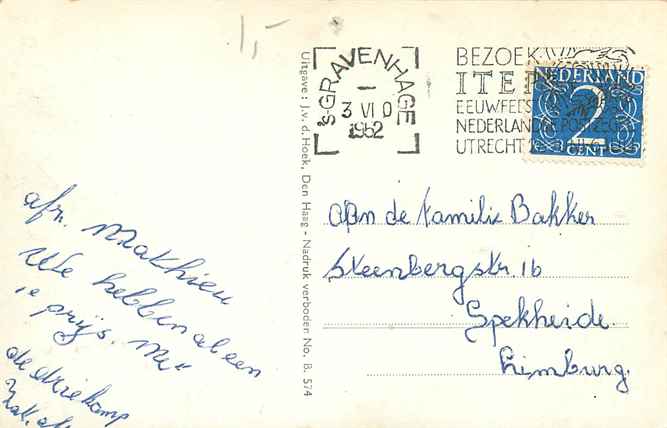 1,-
'S-GRAVENHAGE
3 VI 0
1952
BEZOEK
ITEP
EEUWFEES
NEDERLANDSE POSTZEGEL
UTRECHT
NEDERLAND
2
CENT
Uitgave: J. v. d. Hoek, Den Haag - Nadruk verboden No. B. 574
afz. Mathieu
We hebben al een
1e prijs.
de
aan de familie Bakker
Steenbergstr. 16
Spekheide.
Limburg.